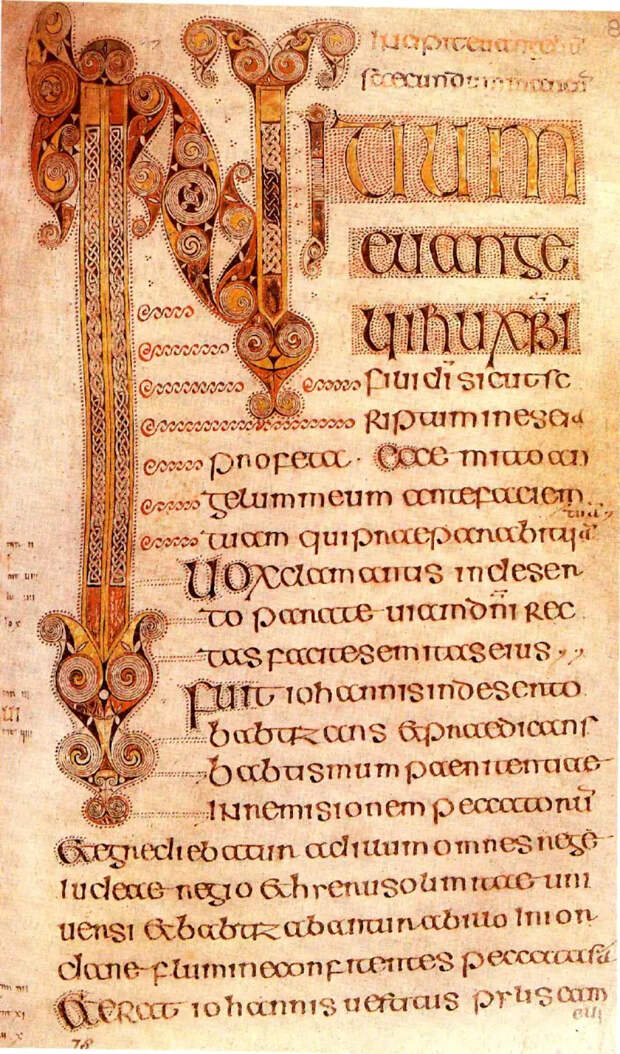 Incipit euangeliū
secundum
INITIUM
euange
lii ihu xpi
filii dī sicut sc
riptum in eseia
profeta · Ecce mitto an
gelum meum ante faciem
tuā
tuam qui praeparabit uiā
Uox clamantis in deser
to parate uiam dn̄i rec
tas facite semitas eius ,,
Fuit iohannis in deserto
babtizans et praedicans
babtismum paenitentiae
in remisionem peccatorū
Et egrediebatur ad illum omnes rege
iudeae regio et hierusolimitae uni
uersi et babtizabantur ab illo in ior
dane flumine confitentes peccata sā
Et erat iohannis uestitus pylis cam
elli
78